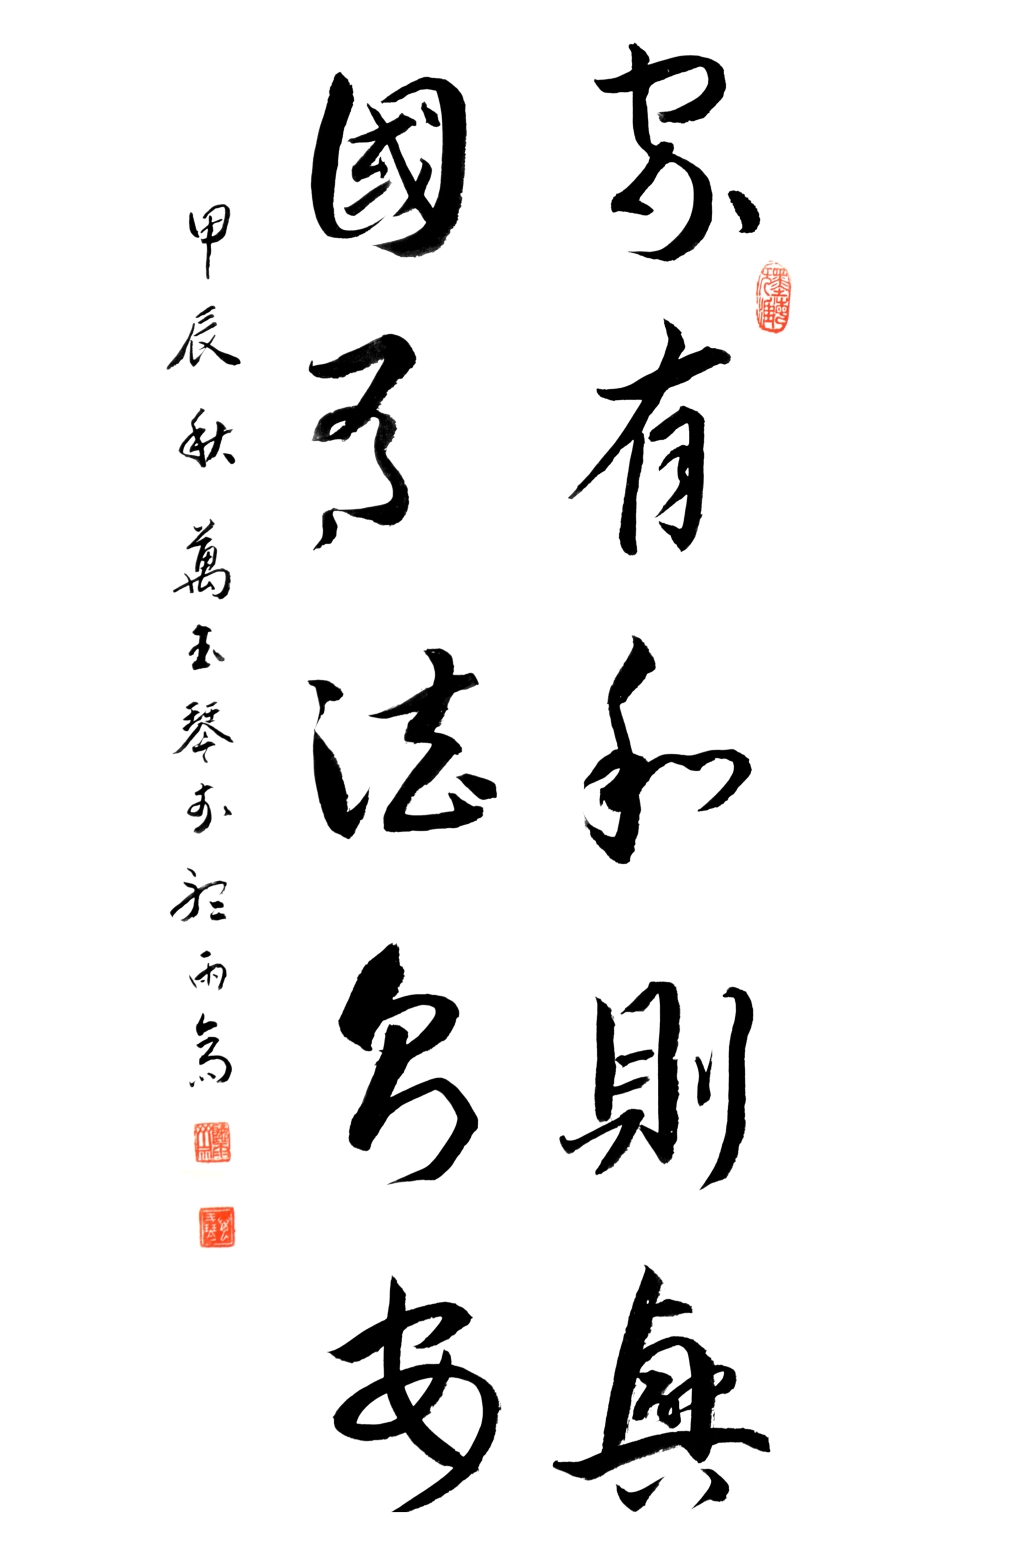 家有和則興
國有法乃安
甲辰秋萬玉琴書於雨亭